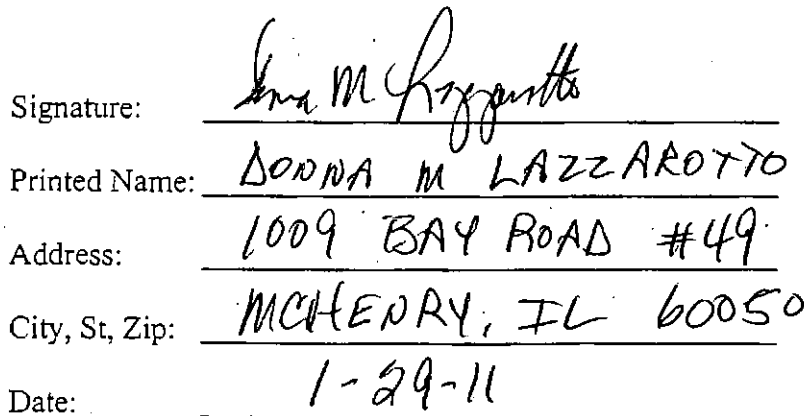 Signature: Donna M Lazzarotto
Printed Name: DONNA M LAZZAROTTO
Address: 1009 BAY ROAD #49
City, St, Zip: MCHENRY, IL 60050
Date: 1-29-11